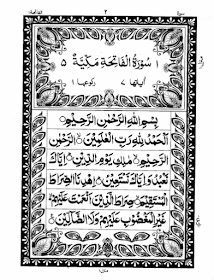 ٢
١ سُوْرَةُ الْفَاتِحَةِ مَكِّيَّةٌ ٥
اٰيَاتُهَا ٧ رُكُوْعُهَا ١
بِسْمِ اللّٰهِ الرَّحْمٰنِ الرَّحِيْمِ
اَلْحَمْدُ لِلّٰهِ رَبِّ الْعٰلَمِيْنَ ۙ الرَّحْمٰنِ
الرَّحِيْمِ ۙ مٰلِكِ يَوْمِ الدِّيْنِ ؕ اِيَّاكَ
نَعْبُدُ وَاِيَّاكَ نَسْتَعِيْنُ ؕ اِهْدِنَا الصِّرَاطَ
الْمُسْتَقِيْمَ ۙ صِرَاطَ الَّذِيْنَ اَنْعَمْتَ عَلَيْهِمْ
غَيْرِ الْمَغْضُوْبِ عَلَيْهِمْ وَلَا الضَّآلِّيْنَ